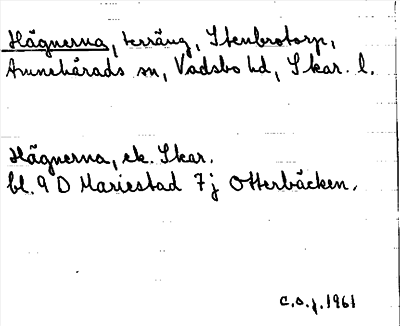 Hägnerna, terräng, Stenbrotorp,
Amnehärads sn, Vadsbo hd, Skar. l.
Hägnerna, ek. Skar.
bl. 9 D Mariestad 7j Otterbäcken.
C.O.J. 1961